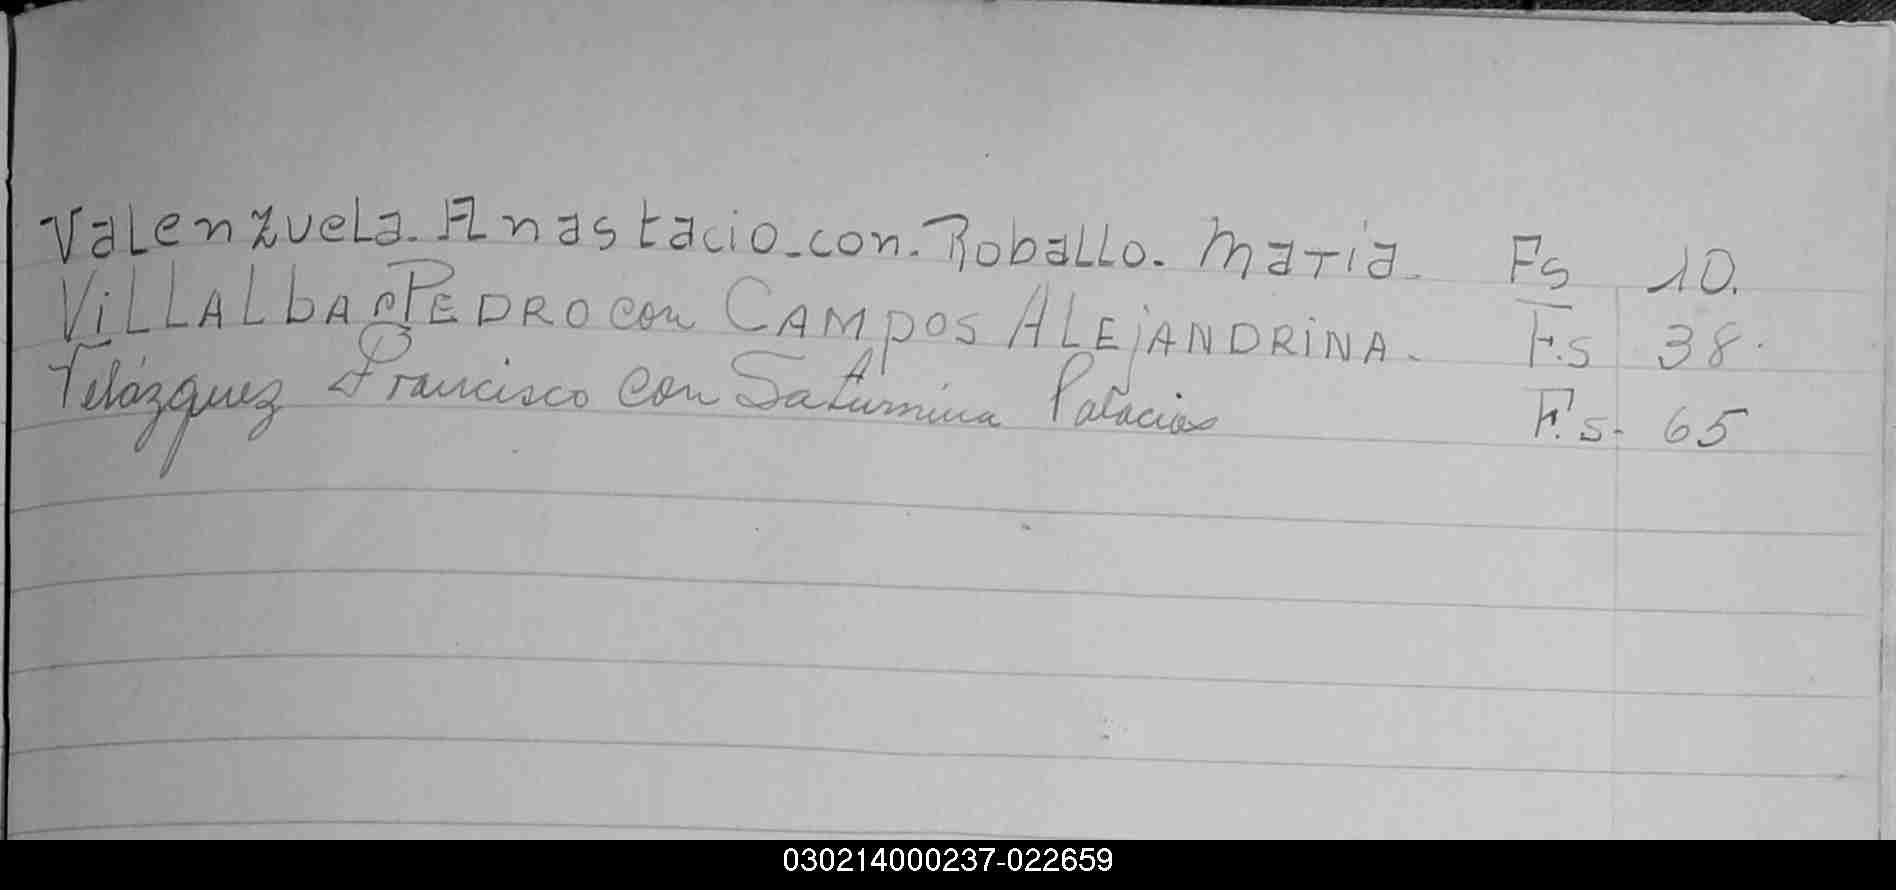 Valenzuela. Anastacio-con. Roballo. Maria. Fs 10.
ViLLALbA PEDRO con CAMPOS ALEjANDRiNA. F.s 38.
Velázquez Francisco con Saturnina Palacios F.s. 65
030214000237-022659